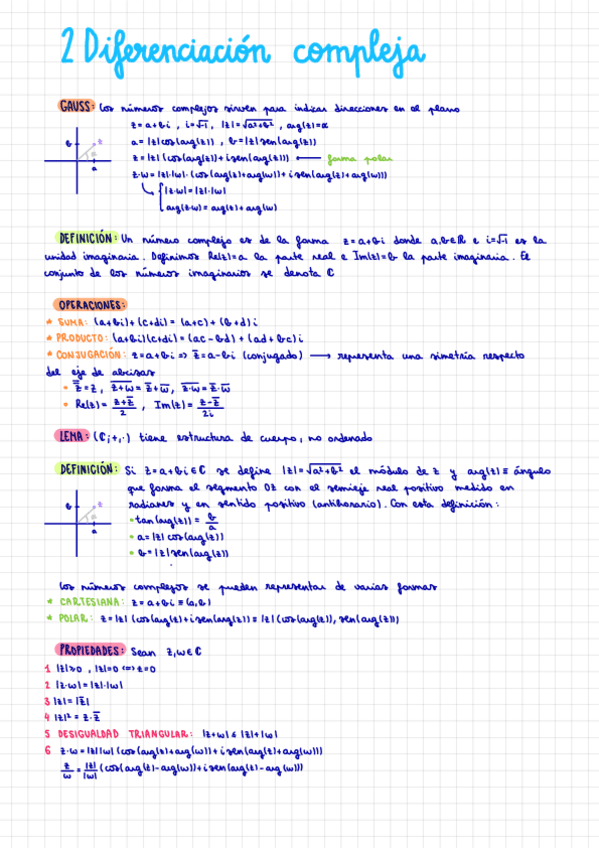 2 Diferenciación compleja
GAUSS: Los números complejos sirven para indicar direcciones en el plano
z = a+bi , i=√-1 , |z|=√a²+b² , arg(z)=α
a=|z|cos(arg(z)) , b=|z|sen(arg(z))
z=|z|(cos(arg(z))+isen(arg(z))) ⟵ forma polar
z·w=|z|·|w|·(cos(arg(z)+arg(w))+i sen(arg(z)+arg(w)))
|z·w|=|z|·|w|
arg(z·w)=arg(z)+arg(w)
b z
a
DEFINICIÓN: Un número complejo es de la forma z=a+bi donde a,b∈ℝ e i=√-1 es la
unidad imaginaria. Definimos Re(z)=a la parte real e Im(z)=b la parte imaginaria. El
conjunto de los números imaginarios se denota ℂ
OPERACIONES:
* SUMA: (a+bi)+(c+di)=(a+c)+(b+d)i
* PRODUCTO: (a+bi)(c+di)=(ac-bd)+(ad+bc)i
* CONJUGACIÓN: z=a+bi => z̅=a-bi (conjugado) ⟶ representa una simetría respecto
del eje de abcisas
• z̿=z , z̅+̅w̅=z̅+w̅ , z̅·̅w̅=z̅·w̅
• Re(z)= (z+z̅)/2 , Im(z)= (z-z̅)/2i
LEMA: (ℂ,+,·) tiene estructura de cuerpo, no ordenado
DEFINICIÓN: Si z=a+bi∈ℂ se define |z|=√a²+b² el módulo de z y arg(z)≡ ángulo
que forma el segmento OZ con el semieje real positivo medido en
radianes y en sentido positivo (antihorario). Con esta definición:
• tan(arg(z))= b/a
• a=|z|cos(arg(z))
• b=|z|sen(arg(z))
b z
a
Los números complejos se pueden representar de varias formas
* CARTESIANA: z=a+bi≡(a,b)
* POLAR: z=|z|(cos(arg(z)+isen(arg(z))≡|z|(cos(arg(z)),sen(arg(z)))
PROPIEDADES: Sean z,w∈ℂ
1 |z|≥0 , |z|=0 <=> z=0
2 |z·w|=|z|·|w|
3 |z|=|z̅|
4 |z|²=z·z̅
5 DESIGUALDAD TRIANGULAR: |z+w|≤|z|+|w|
6 z·w=|z||w|(cos(arg(z)+arg(w))+isen(arg(z)+arg(w)))
z/w=|z|/|w|(cos(arg(z)-arg(w))+isen(arg(z)-arg(w)))